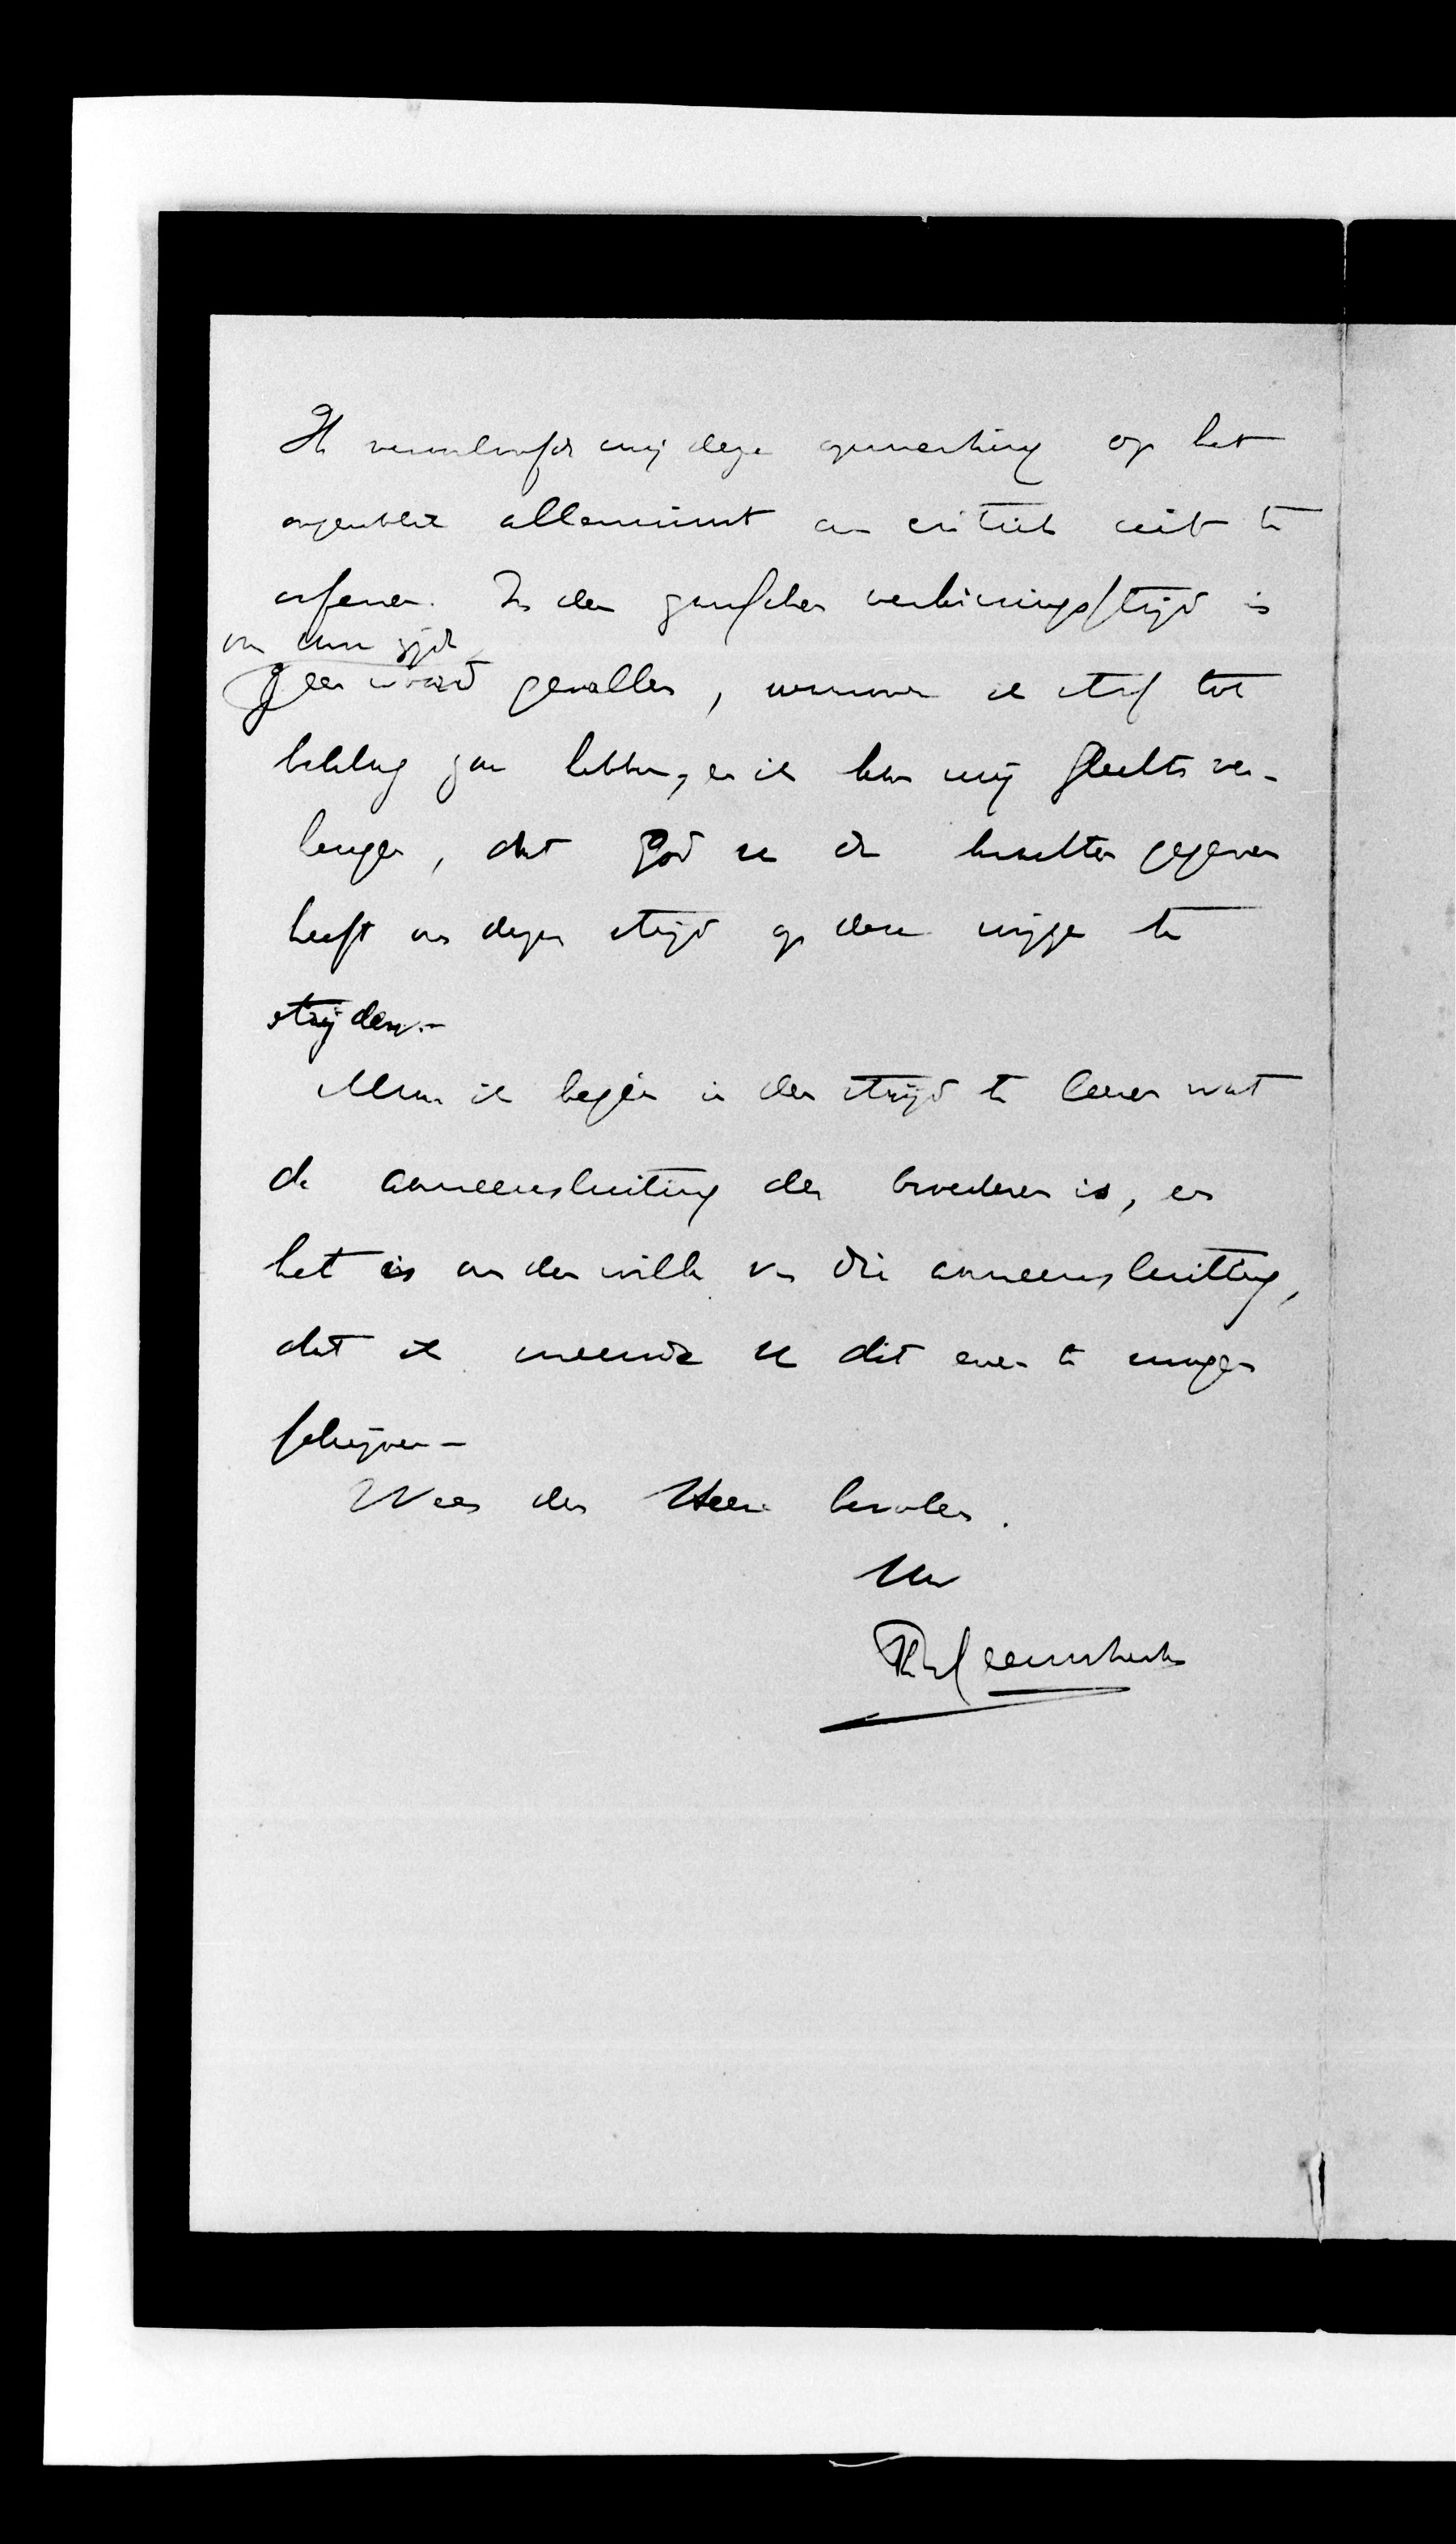 Ik veroorloofde mij deze opmerking op het
oogenblik allerminst om critiek uit te
oefenen. In den ganschen verkiezingsstrijd is
van uwe zijde
geen woord gevallen, waarover ik stof tot
beklag zou hebben, en ik kan mij slechts ver-
heugen, dat God u de krachten gegeven
heeft om dezen strijd op deze wijze te
strijden.-
Maar ik begin in den strijd te leeren wat
de aaneensluiting der broederen is, en
het is om der wille van die aaneensluiting,
dat ik meende u dit even te mogen
schrijven-
Wees den Heere bevolen.
Uw
Th Heemskerk